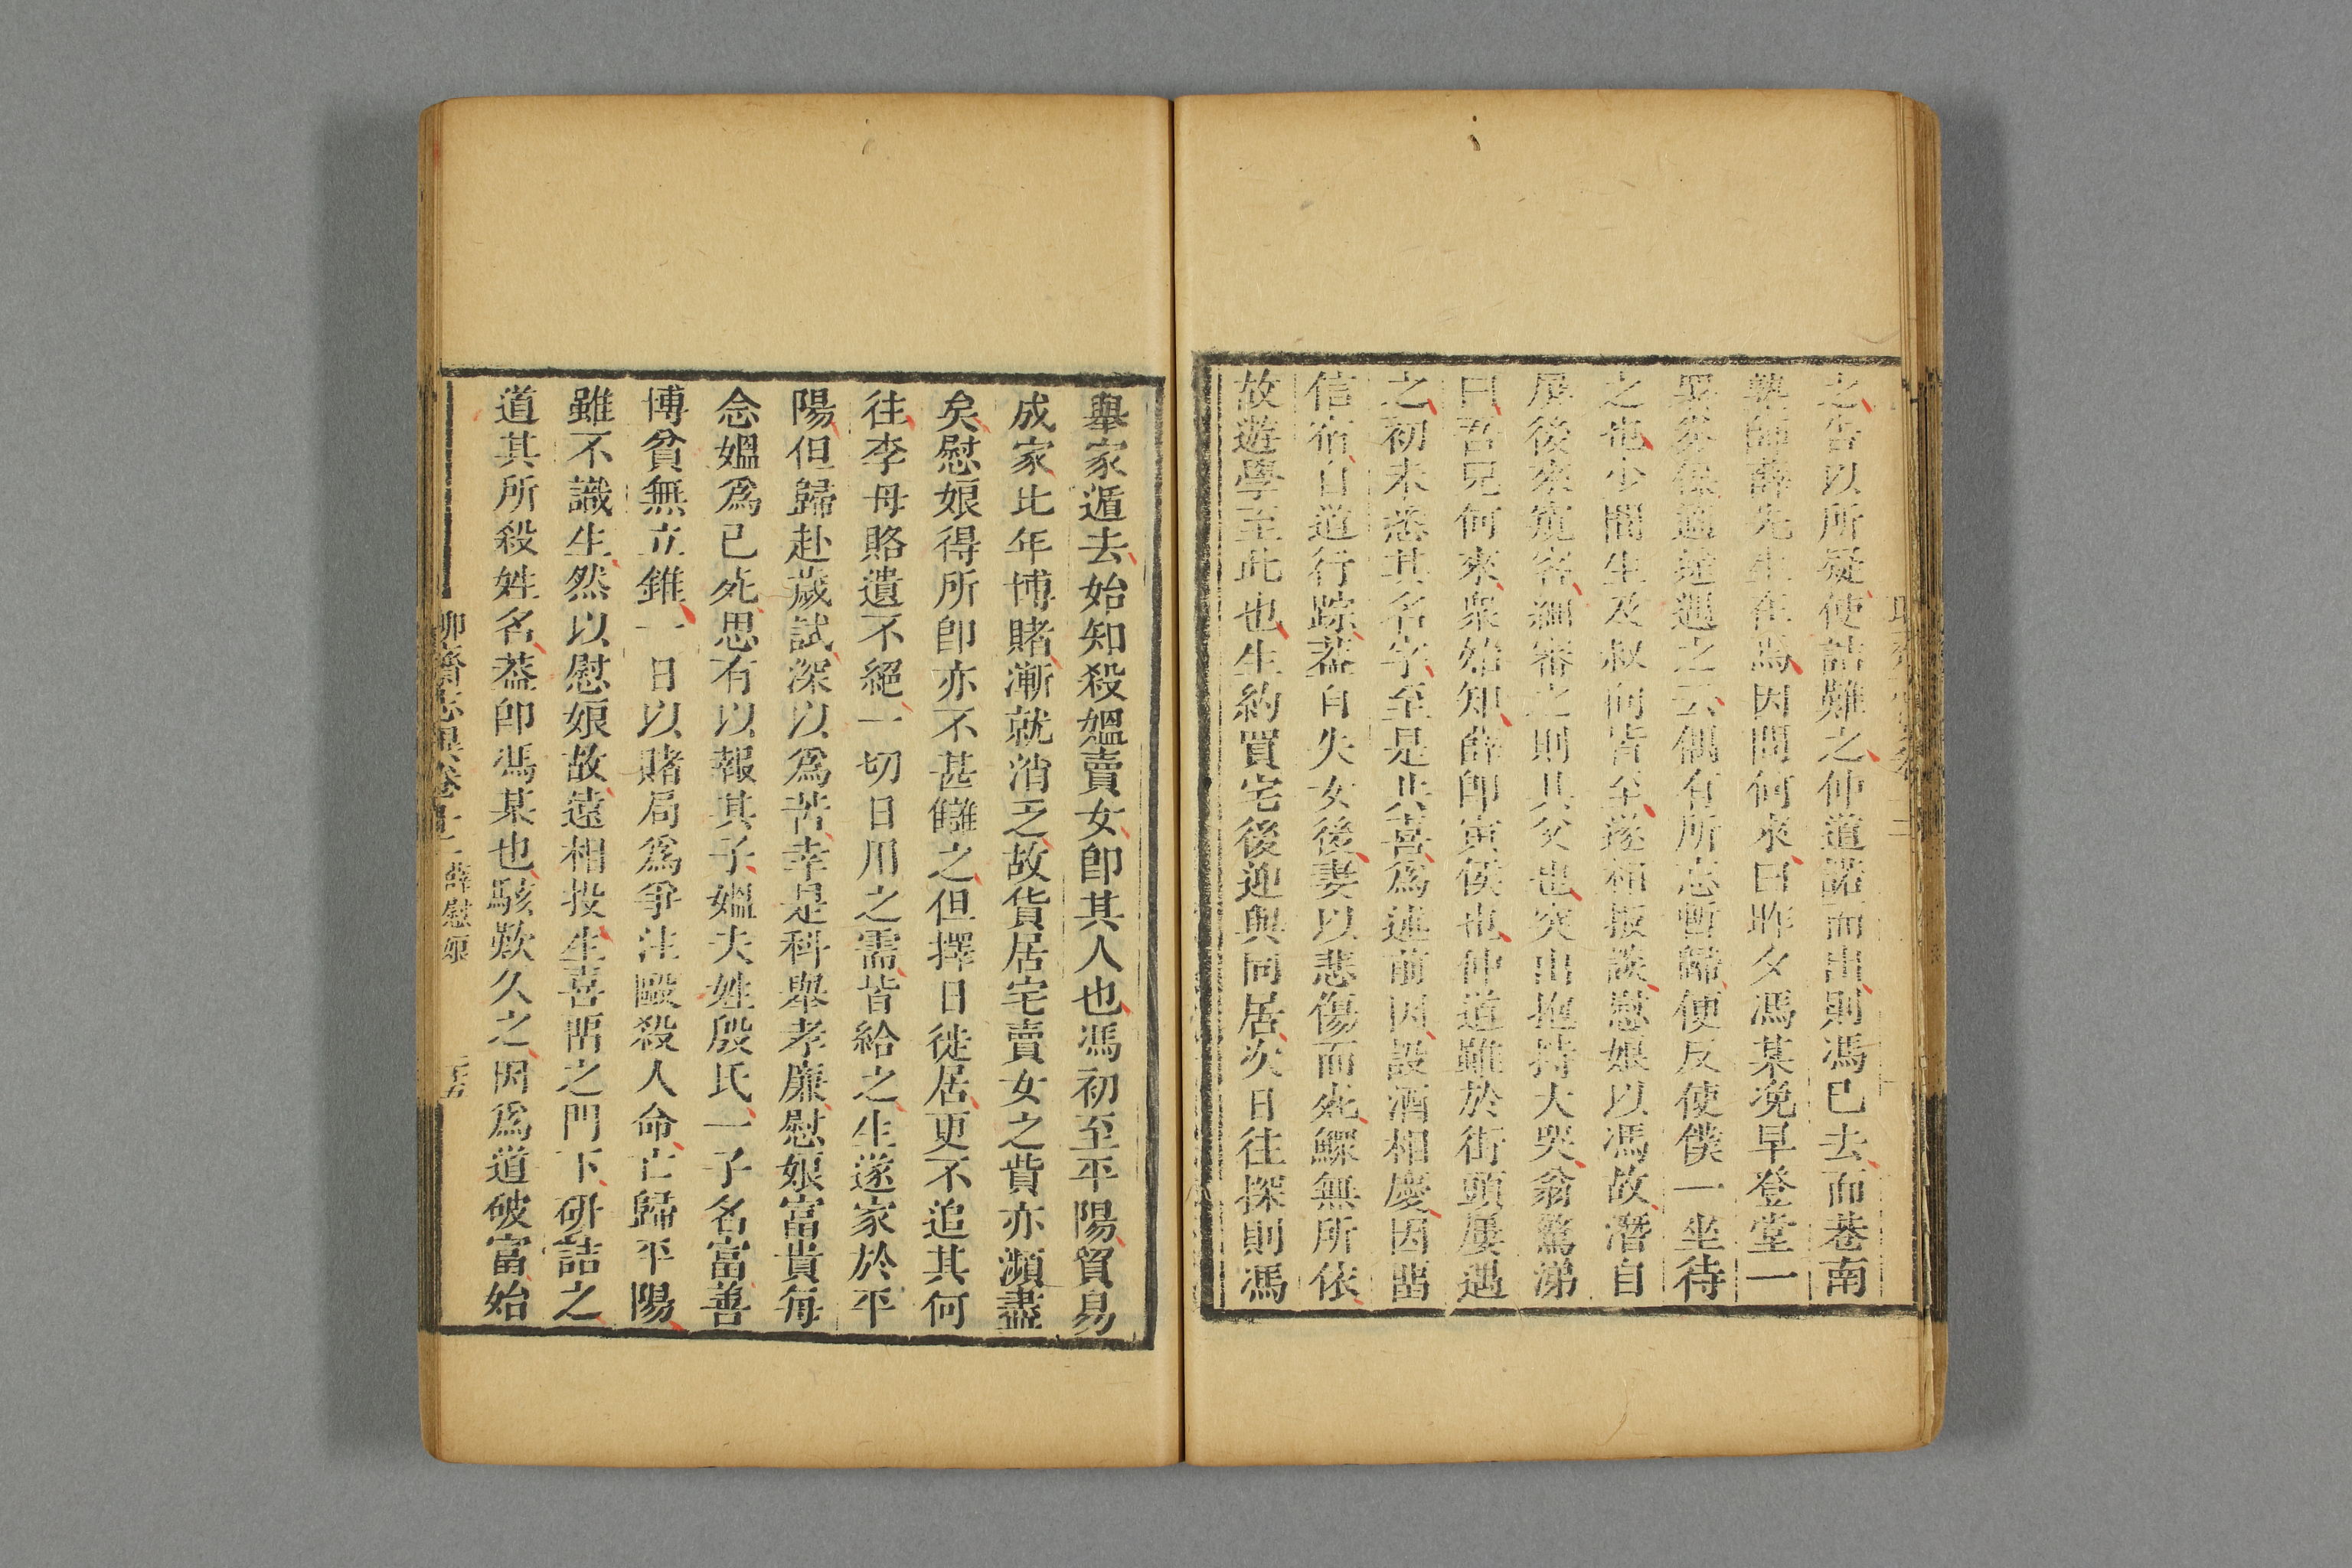 之告以所疑使詰難之仲道諾而出則馮已去而巷南
塾師薛先生在焉因問何來曰昨夕馮某浼早登堂一
署券保適途遇之云偶有所忘暫歸便反使僕一坐待
之也少間生及叔向皆至遂相扳談慰娘以馮故潛自
屏後來窺客細審之則其父也突出抱持大哭翁驚涕
曰吾兒何來衆始知薛卽寅侯也仲道雖於街頭屢遇
之初未悉其名字至是共喜爲述前因設酒相慶因留
信宿自道行踪葢自失女後妻以悲傷而死鰥無所依
故遊學至此也生約買宅後迎與同居次日往探則馮
舉家遁去始知殺媼賣女卽其人也馮初至平陽貿易
成家比年博賭漸就消乏故貨居宅賣女之貲亦瀕盡
矣慰娘得所卽亦不甚讎之但擇日徙居更不追其何
往李母賂遺不絕一切日用之需皆給之生遂家於平
陽但歸赴歲試深以爲苦幸是科舉孝廉慰娘富貴每
念媼爲已死思有以報其子媼夫姓殷氏一子名富善
博貧無立錐一日以賭局爲爭注毆殺人命亡歸平陽
雖不識生然以慰娘故遠相投生喜留之門下研詰之
道其所殺姓名葢卽馮某也駭歎久之因爲道破富始
聊齋志異卷十二 薛慰娘